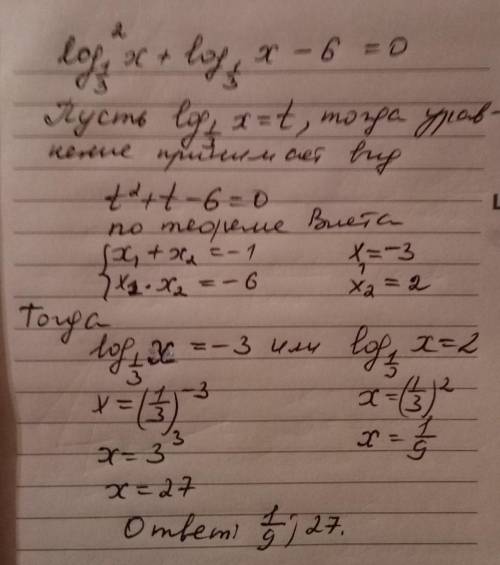 log²_{1/3} x + log_{1/3} x − 6 = 0
Пусть log_{1/3} x = t, тогда урав-
нение принимает вид
t² + t − 6 = 0
по теореме Виета
{ x₁ + x₂ = −1    x₁ = −3
{ x₁ · x₂ = −6    x₂ = 2
Тогда
log_{1/3} x = −3 или log_{1/3} x = 2
x = (1/3)^{−3}    x = (1/3)²
x = 3³    x = 1/9
x = 27
Ответ: 1/9; 27.